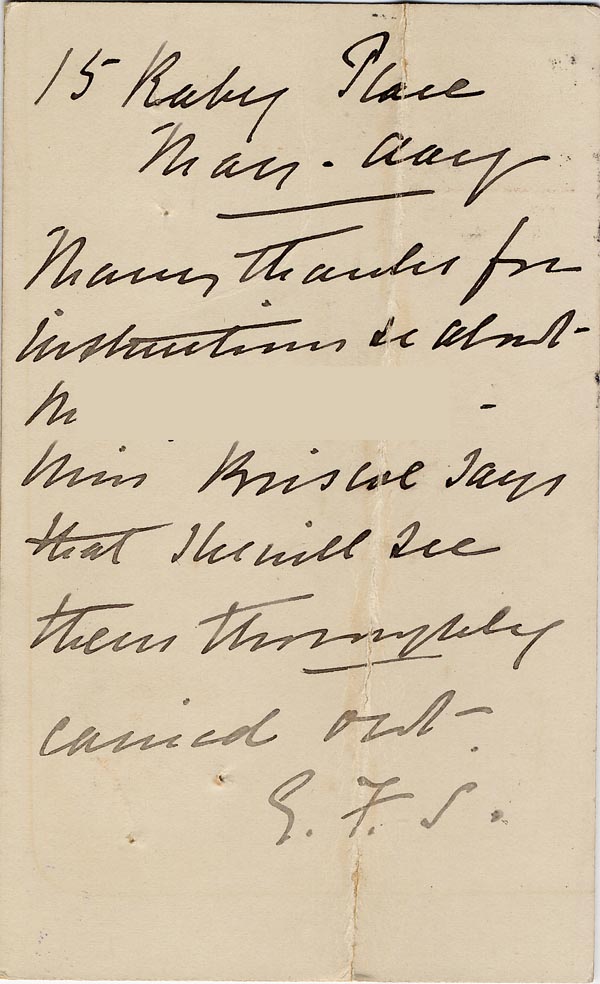 15 Raby Place
May-day
Many thanks for
instructions &c about
Miss Briscoe says
that she will see
them thoroughly
carried out.
G. F. S.